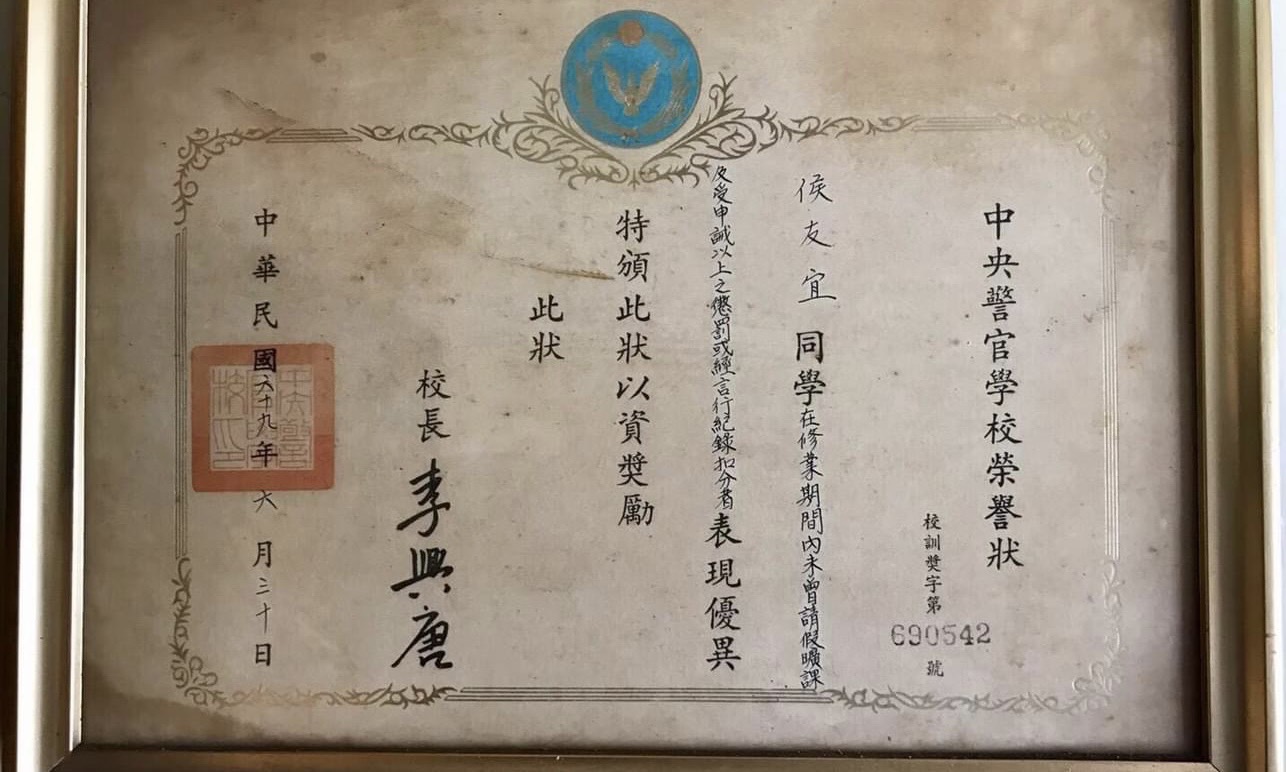 中央警官學校榮譽狀
校訓獎字第690542號
侯友宜同學在修業期間內未曾請假曠課
及受申誡以上之懲罰或經言行紀錄扣分者表現優異
特頒此狀以資獎勵
此狀
校長李興唐
中華民國六十九年六月三十日